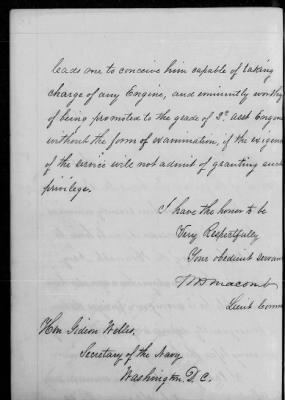 leads one to conceive him capable of taking
charge of any Engine, and eminently worthy
of being promoted to the grade of 2d asst Engine
without the form of examination, if the exigen
of the service will not admit of granting such
privilege.
I have the honor to be
Very Respectfully
Your obedient servan
Macomb
Lieut Comm
Hon Gideon Welles,
Secretary of the Navy
Washington D. C.